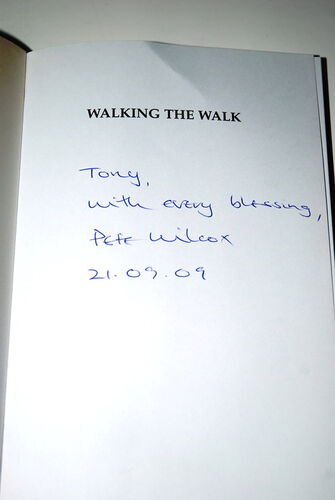 WALKING THE WALK
Tony,
with every blessing,
Pete Wilcox
21.09.09